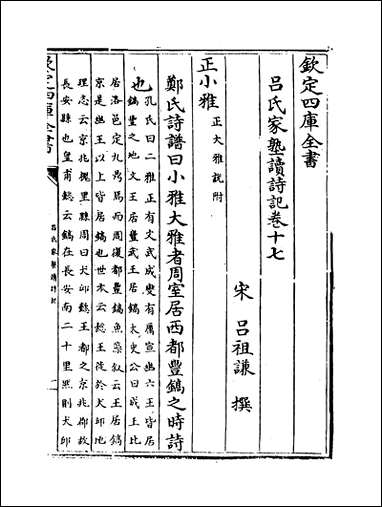 欽定四庫全書
呂氏家塾讀詩記卷十七
宋 呂祖謙 撰
正小雅 正大雅說附
鄭氏詩譜曰小雅大雅者周室居西都豐鎬之時詩
也 孔氏曰二雅正有文武成變有厲宣幽六王皆居
鎬豐之地文王居豐武王居鎬太史公曰成王卜
居洛邑定九鼎焉而周復都豐鎬魚藻敘云王居鎬
京是幽王以上皆居鎬也世本云懿王徙於犬邱地
理志云京兆槐里縣周曰犬邱懿王都之京兆郡故
長安縣也皇甫謐云鎬在長安南二十里然則犬邱
欽定四庫全書
呂氏家塾讀詩記
一